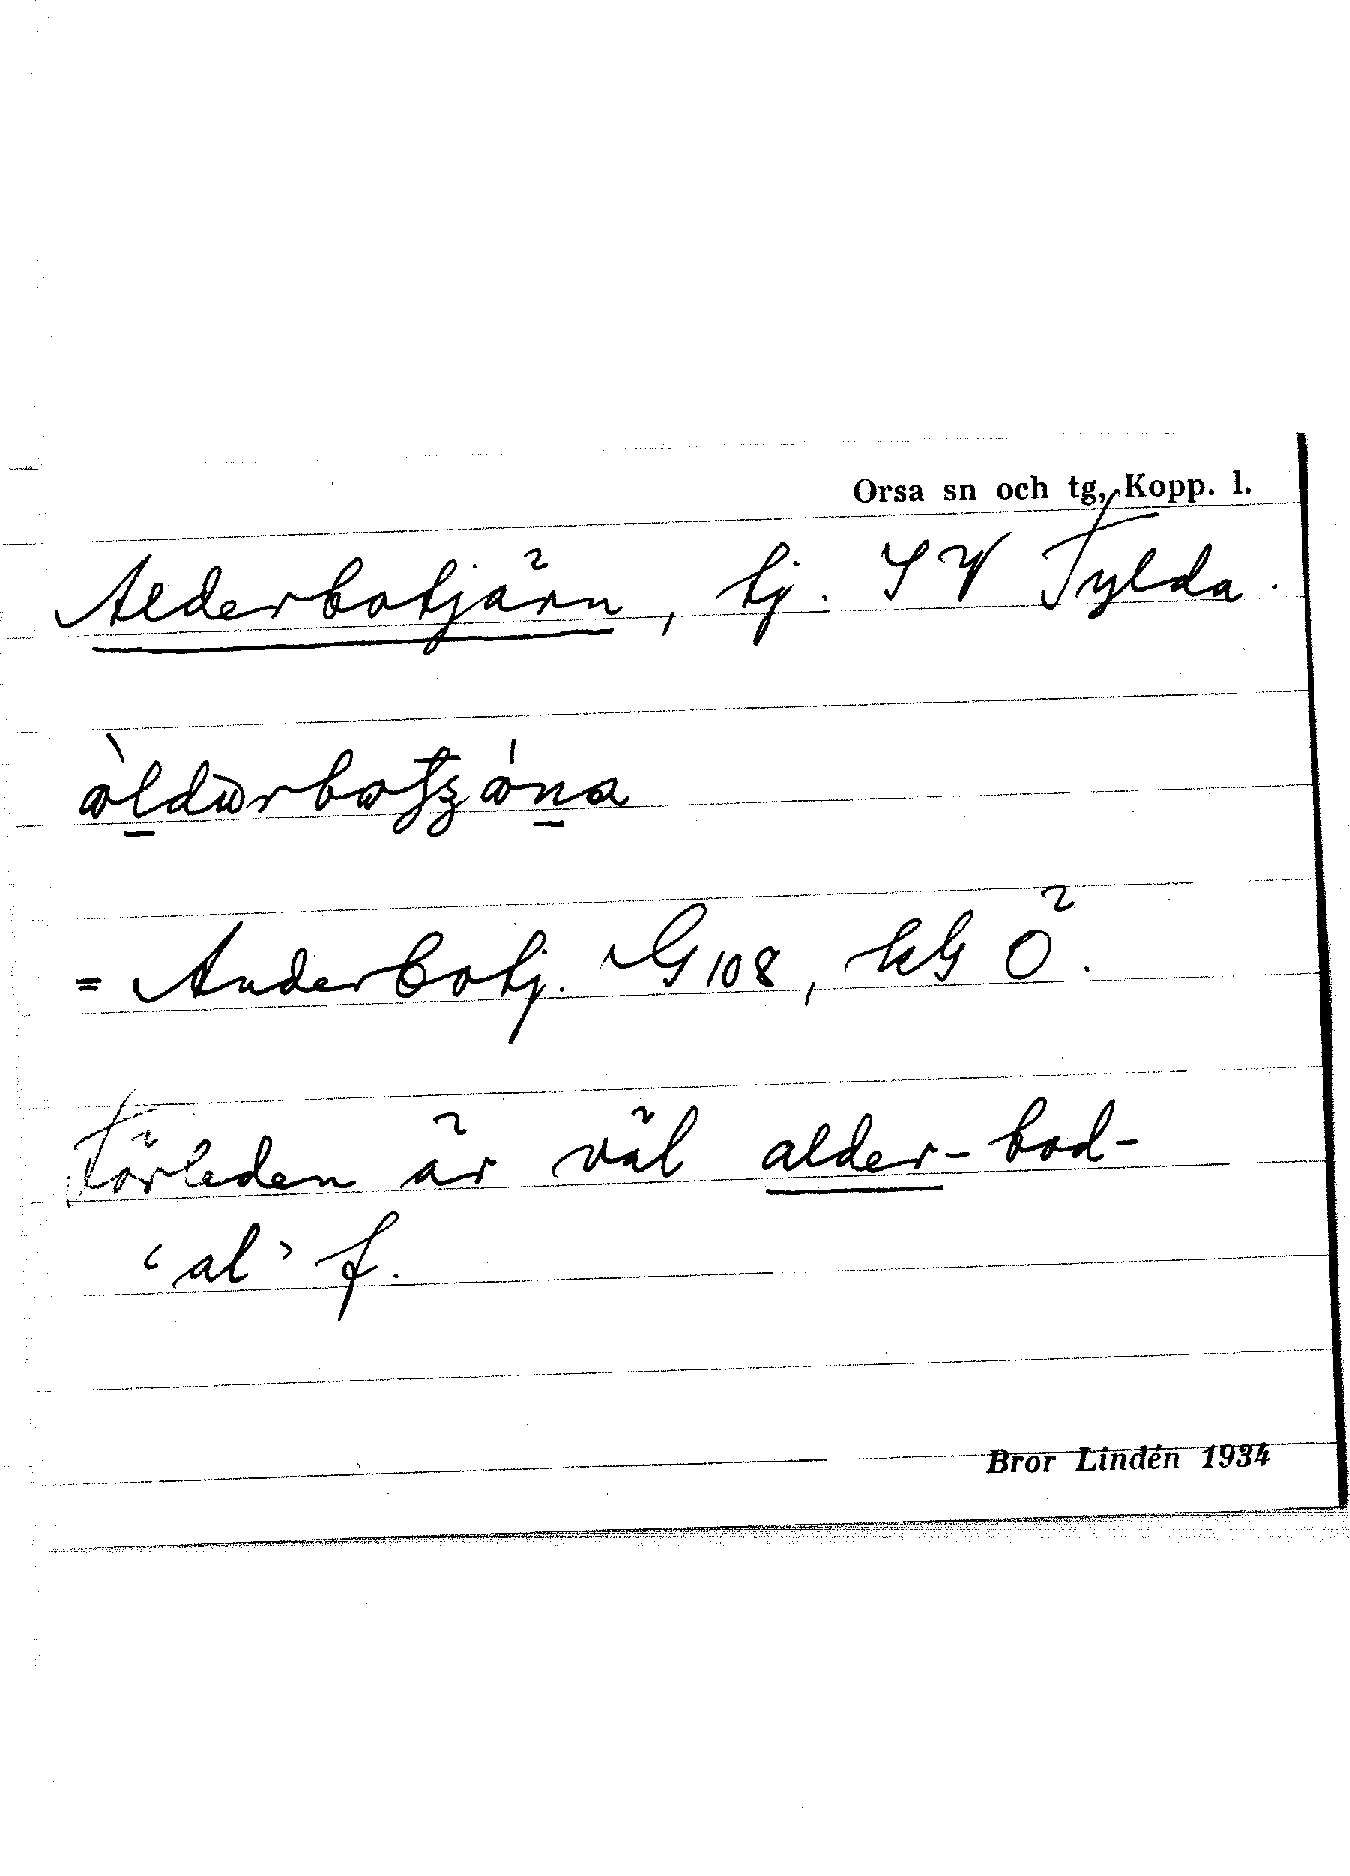 Orsa sn och tg, Kopp. l.
Alderbotjärn, tj. SV Fylda.
= Anderbotj. G 108, kG Ö.
Förleden är väl alder-bod-
‘al’ f.
Bror Lindén 1934